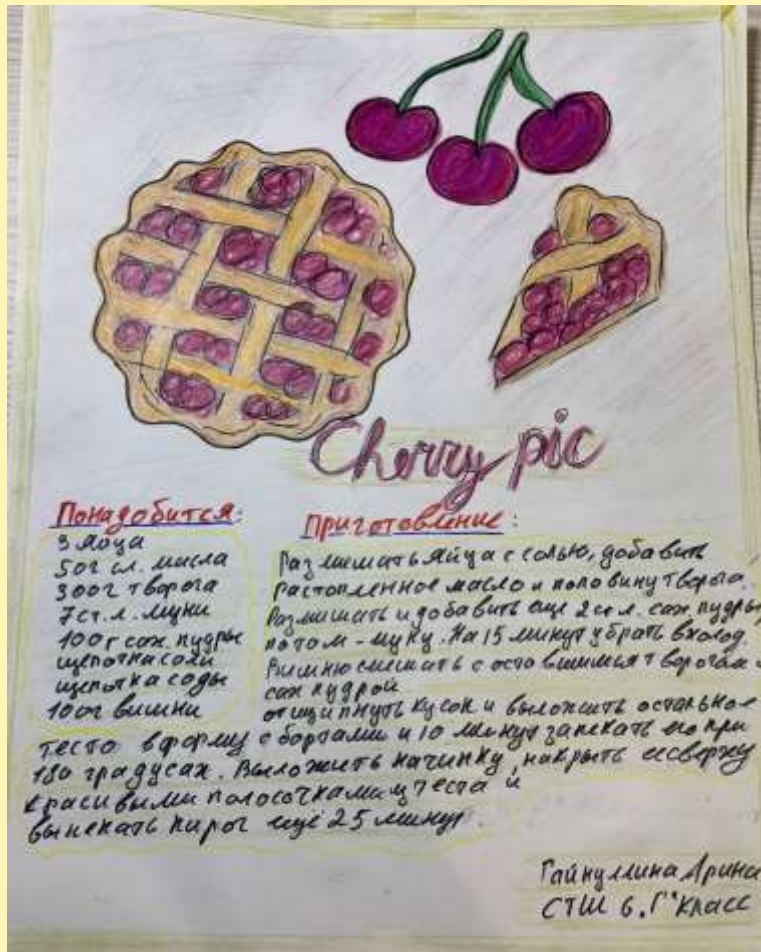 Cherry pie
Понадобится:
3 яйца
50г сл. масла
300г творога
7 ст. л. муки
100г сах. пудры
щепотка соли
щепотка соды
100г вишни
Приготовление:
Размешать яйца с солью, добавить
растопленное масло и половину творога.
Размешать и добавить еще 2 ст л. сах. пудры,
потом - муку. На 15 минут убрать в холод.
Вишню смешать с оставшимся творогом и
сах пудрой
отщипнуть кусок и выложить остальное
тесто в форму с бортами и 10 минут запекать его при
180 градусах. Выложить начинку, накрыть ее сверху
красивыми полосочками из теста и
выпекать пирог ещё 25 минут.
Гайнуллина Арина
СТШ 6 "Г" класс